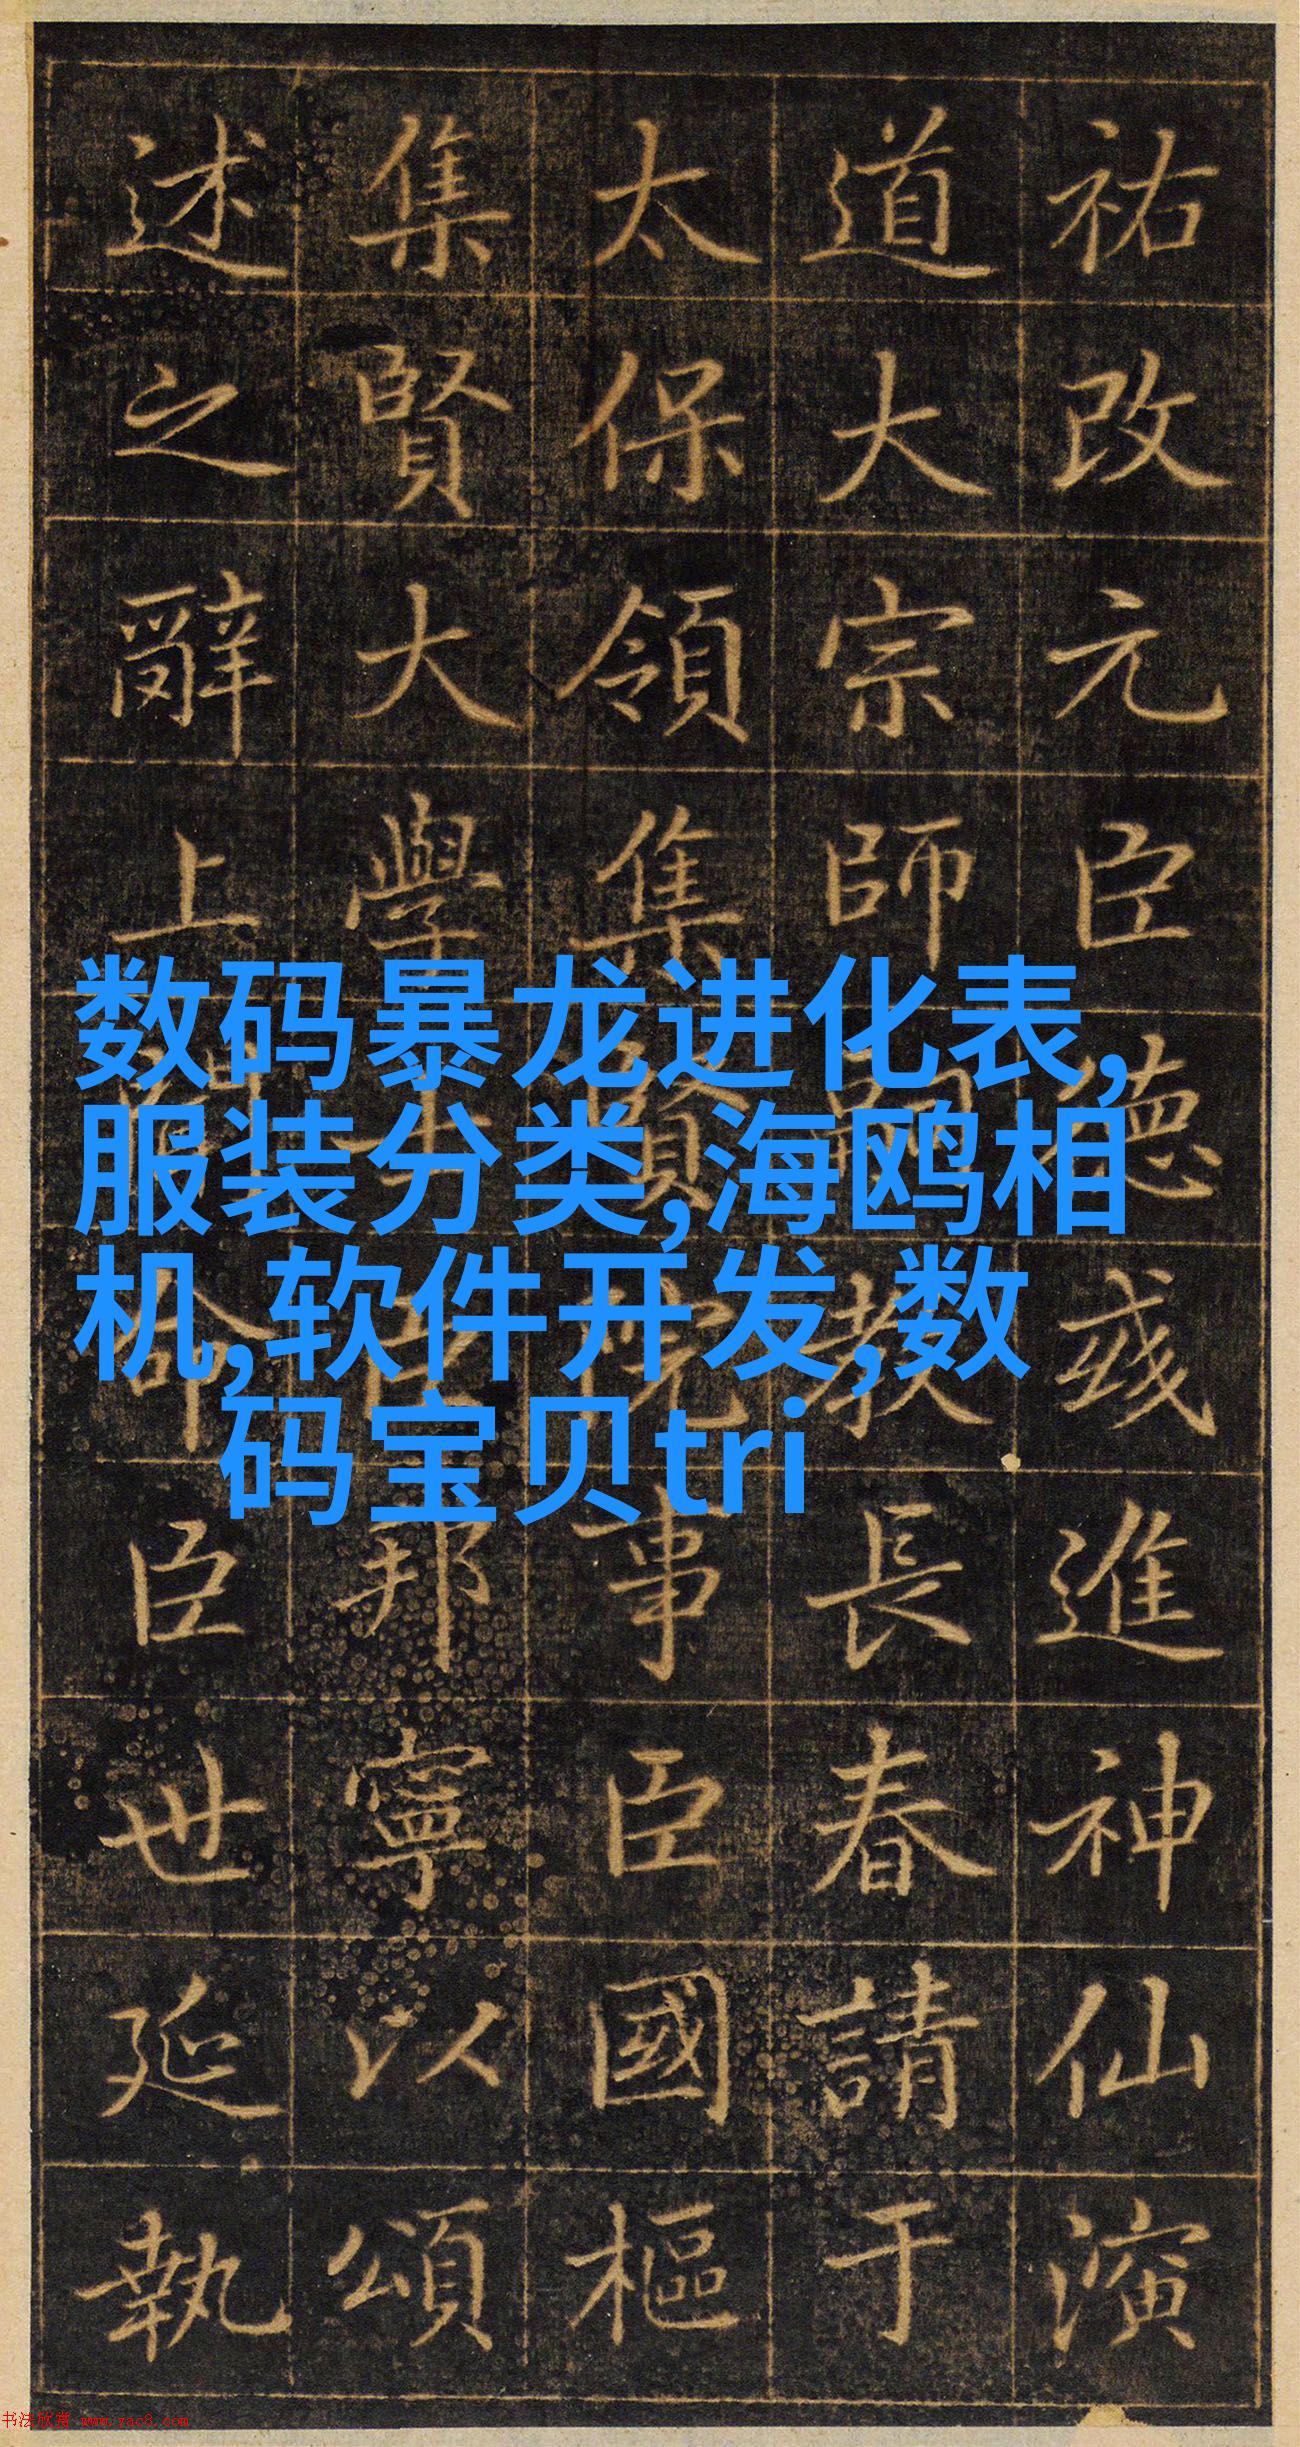 祐改元臣德彧進神仙演
道大宗師嗣教長春請于
太保領集賢院事臣國樞
集賢大學士臣邦寧以頌
述之辭上聞命臣世延執
数码暴龙进化表,
服装分类,海鸥相
机,软件开发,数
码宝贝tri
书法欣赏 www.yac8.com